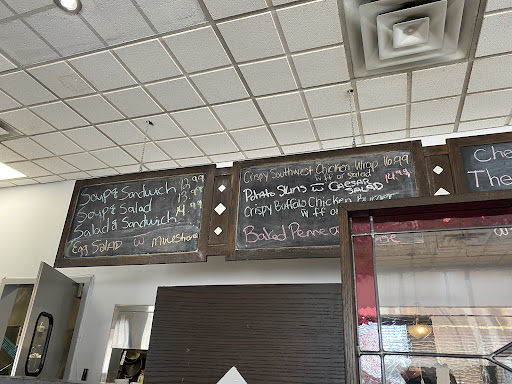 Soup & Sandwich 12.99
Soup & Salad 13.99
Salad & Sandwich 14.99
Egg Salad w Minestrone
Crispy Southwest Chicken Wrap 16.99
w ff or Salad
Potato Skins w Caesar Salad 14.99
Crispy Buffalo Chicken Burger
w ff or
Baked Penne
The